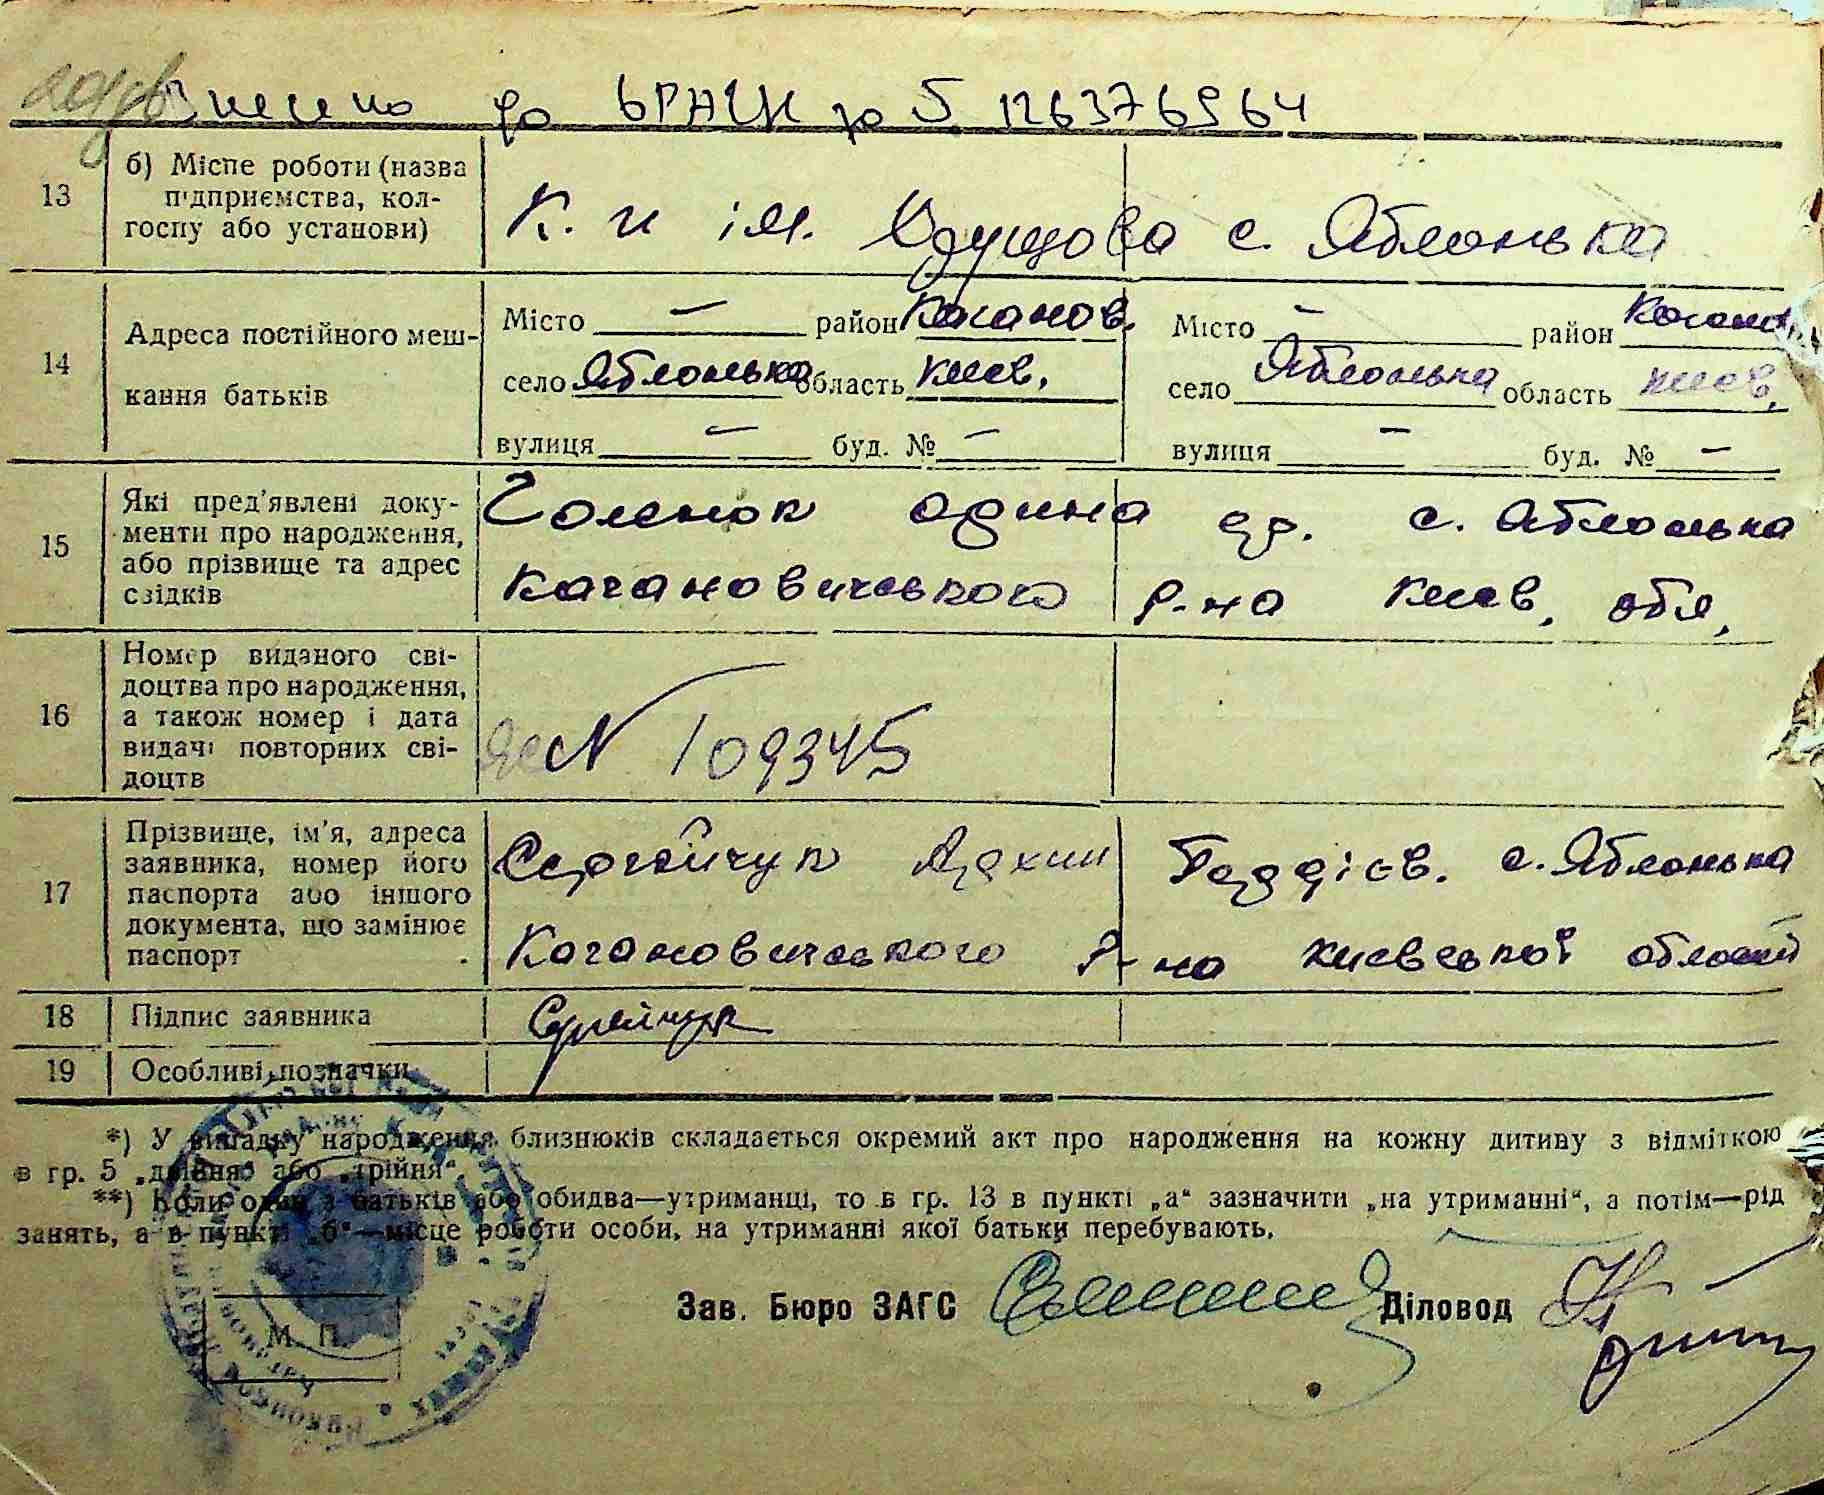 Внесено до ДРАЦС за № 1263769564
13 б) Місце роботи (назва підприємства, колгоспу або установи)
К. и ім. Хрущова с. Яблонька
14 Адреса постійного мешкання батьків
Місто — район Каганов. Місто — район Каганов.
село Яблонька область Києв. село Яблонька область Києв.
вулиця — буд. № — вулиця — буд. № —
15 Які пред'явлені документи про народження, або прізвище та адрес свідків
один др. с. Яблонька
Кагановичського р-на Києв. обл.
16 Номер виданого свідоцтва про народження, а також номер і дата видачі повторних свідоцтв
№ 109345
17 Прізвище, ім'я, адреса заявника, номер його паспорта або іншого документа, що замінює паспорт
Сергійчук с. Яблонька
Кагановичського р-на Києвської області
18 Підпис заявника Сергійчук
19 Особливі позначки
*) У випадку народження близнюків складається окремий акт про народження на кожну дитину з відміткою
в гр. 5 „двійня“ або „трійня“
**) Коли один з батьків або обидва—утриманці, то в гр. 13 в пункті „а“ зазначити „на утриманні“, а потім—рід
занять, а в пункті „б“—місце роботи особи, на утриманні якої батьки перебувають.
Зав. Бюро ЗАГС Діловод
М. П.